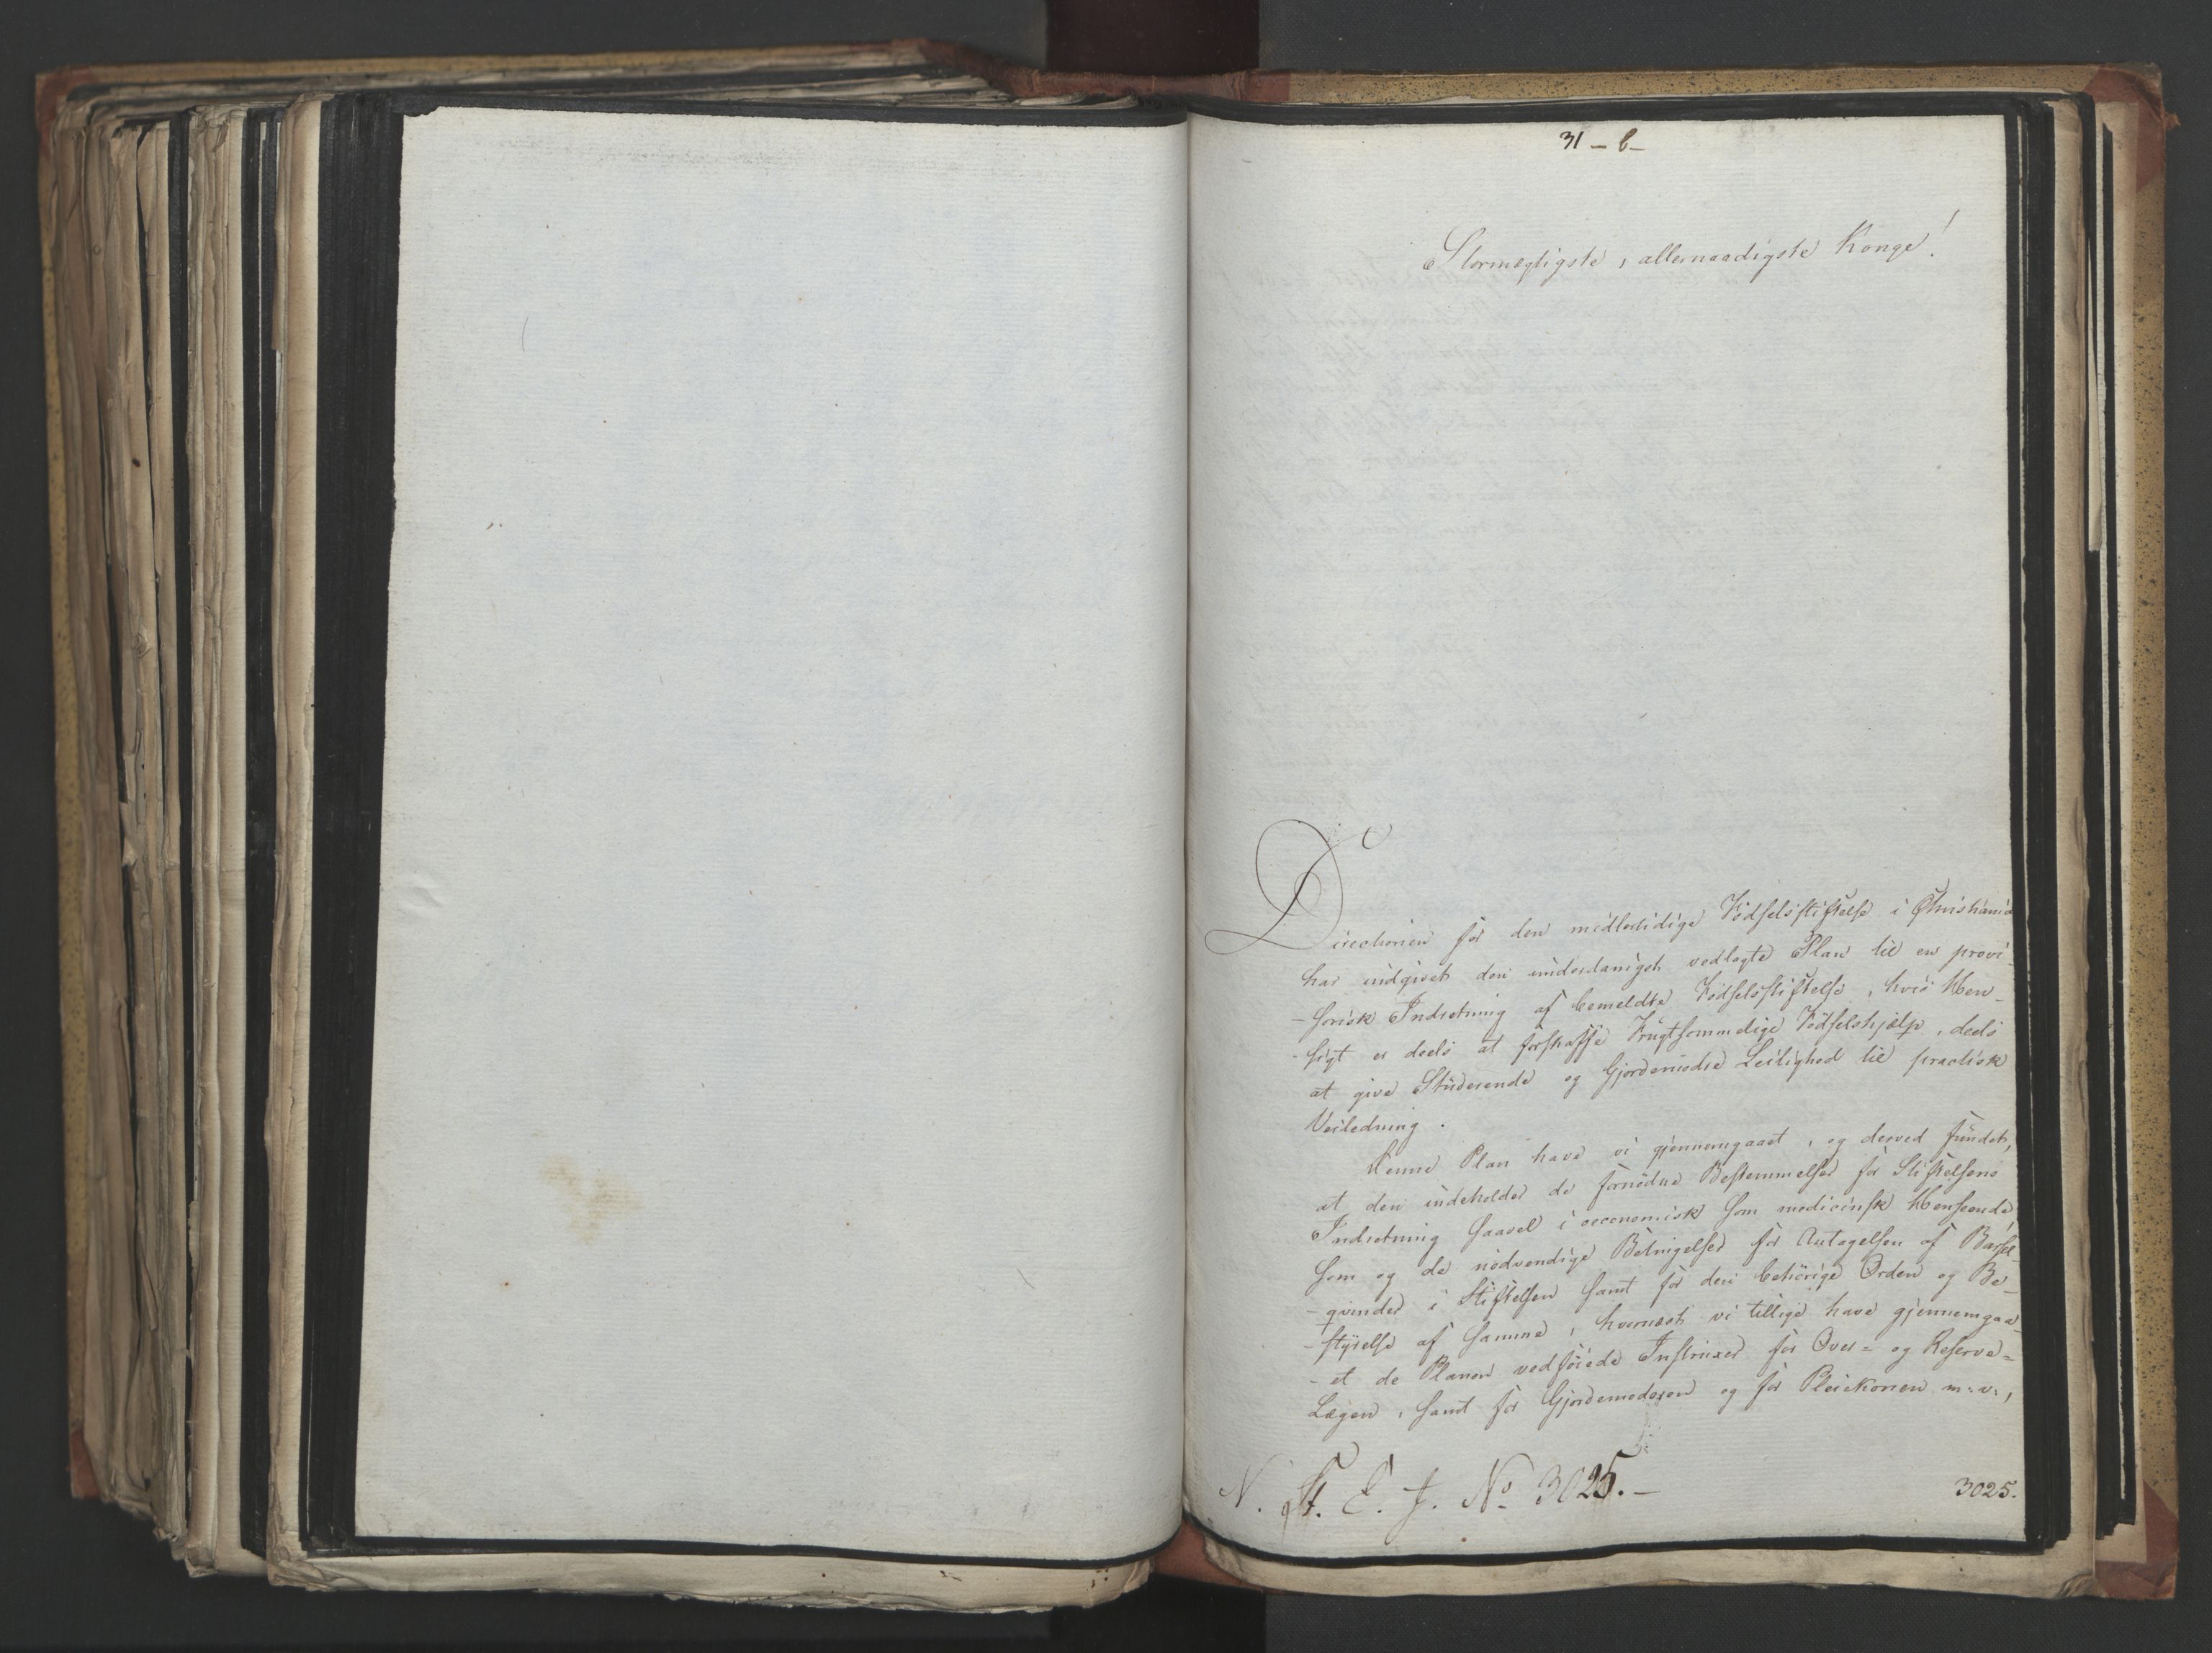 31 – b –
Stormægtigste, allernaadigste Konge!
Directionen for den midlertidige Födselsstiftelse i Christiania
har indgivet den underdanigst vedlagte Plan til en provi-
-sorisk Indretning af bemeldte Födselsstiftelse, hvis Hen-
-sigt er deels at forskaffe Frugtsommelige Födselshjelp, deels
at give Studerende og Gjordemödre Leilighed til practisk
Veiledning.
Denne Plan have vi gjennemgaaet, og derved fundet,
at den indeholder de fornödne Bestemmelser for Stiftelsens
Indretning saavel i oeconomisk som medicinsk Henseende
som og de nödvendige Betingelser for Antagelsen af Barsel-
-qvinder i Stiftelsen samt for den behörige Orden og Be-
-styrelse af samme, hvornæst vi tillige have gjennemgaa-
-et de Planen vedföiede Instruxer for Over- og Reserve-
Lægen, samt for Gjordemoderen og for Pleiekonen m. v.,
N. St. E. J. No 3025. –
3025.